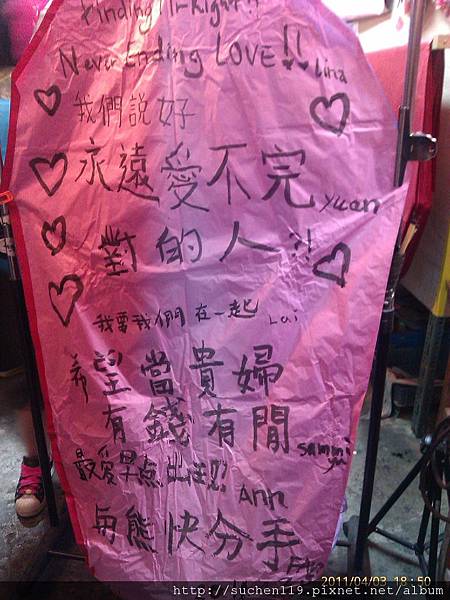 Finding Mr. Right!!
Never Ending LOVE!! Lina
我們說好
永遠愛不完 yuan
對的人?!
我要我們在一起 Lai
希望當貴婦
有錢有閒 Sammi
最愛早点出王!!
Ann
与熊快分手
2011/04/03 18:50
http://suchen119.pixnet.net/album